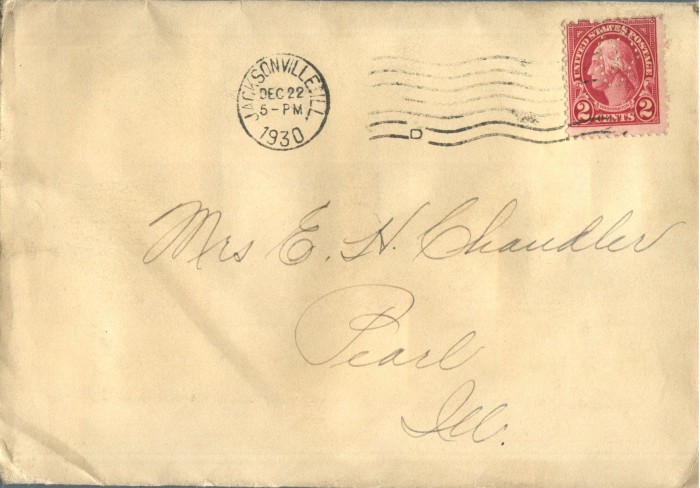 JACKSONVILLE, ILL.
DEC 22
5-PM
1930
D
UNITED STATES POSTAGE
2 CENTS 2
Mrs E. H. Chandler
Pearl
Ill.